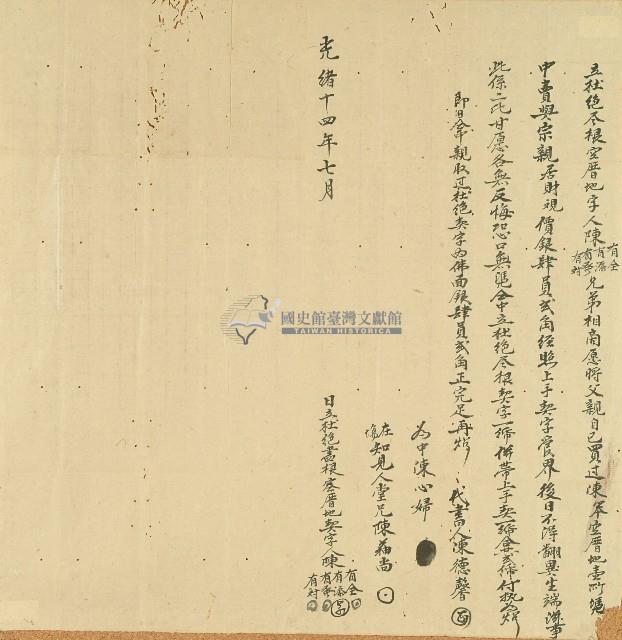 立杜絕尽根空厝地字人陳有全有添有夢有對兄弟相商愿將父親自己買过陳 空厝地壹所憑
中賣與宗親居財視價銀肆員貳角經照上手契字管界後日不淂翻異生端滋事
此係二比甘愿各無反悔恐口無憑仝中立杜絕尽根契字一帋併帶上手契一帋合共貳帋付執為炤
即日仝中親收过杜絕契字內佛面銀肆員貳角正完足再炤 代書人陳德馨
為中陳心婦
在塲知見人堂兄陳 尚
光緒十四年七月 日立杜絕盡根空厝地契字人陳有全有添有夢有對
國史館臺灣文獻館
TAIWAN HISTORICA